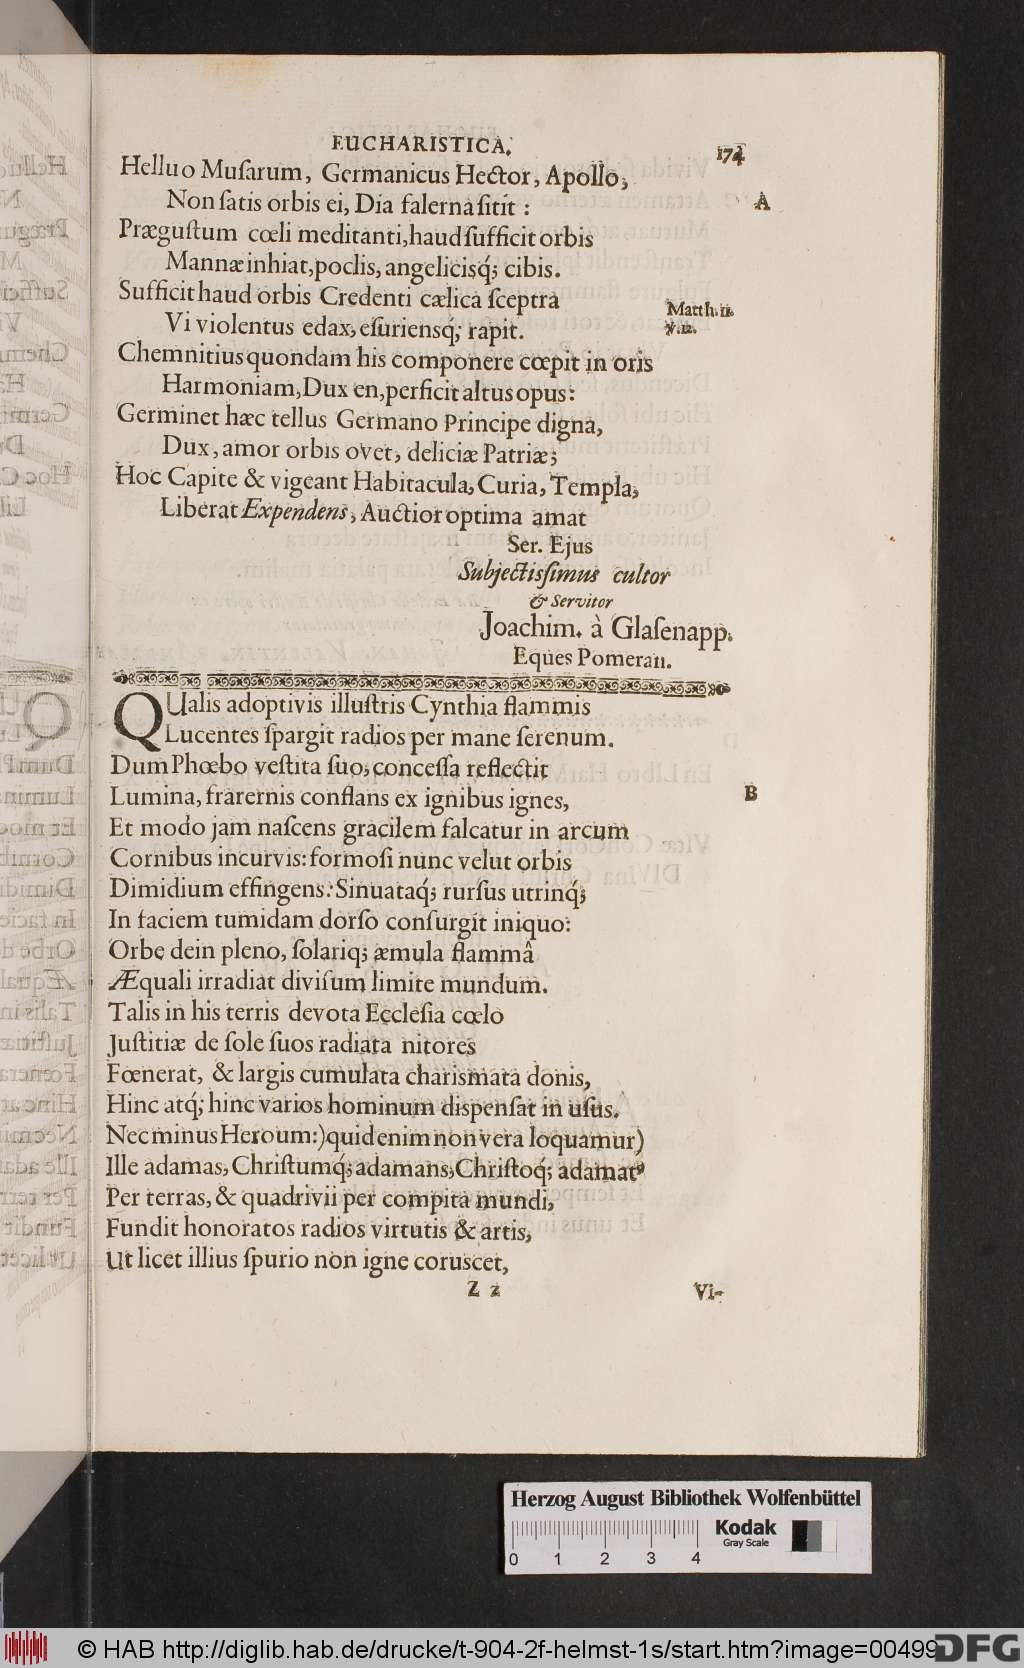 EUCHARISTICA.
174
Helluo Muſarum, Germanicus Hector, Apollo,
Non ſatis orbis ei, Dia falerna ſitit :
A
Præguſtum cœli meditanti, haud ſufficit orbis
Mannæ inhiat, poclis, angelicisq́; cibis.
Sufficit haud orbis Credenti cælica ſceptra
Matth. 11.
Vi violentus edax, eſuriensq; rapit.
v. 12.
Chemnitius quondam his componere cœpit in oris
Harmoniam, Dux en, perficit altus opus:
Germinet hæc tellus Germano Principe digna,
Dux, amor orbis ovet, deliciæ Patriæ;
Hoc Capite & vigeant Habitacula, Curia, Templa,
Liberat Expendens, Auctior optima amat
Ser. Ejus
Subjectiſſimus cultor
& Servitor
Joachim. à Glaſenapp.
Eques Pomeran.
QUalis adoptivis illuſtris Cynthia flammis
Lucentes ſpargit radios per mane ſerenum.
Dum Phœbo veſtita ſuo, conceſſa reflectit
Lumina, fraternis conflans ex ignibus ignes,
B
Et modo jam naſcens gracilem falcatur in arcum
Cornibus incurvis: formoſi nunc velut orbis
Dimidium effingens: Sinuataq́; rurſus utrinq́;
In faciem tumidam dorſo conſurgit iniquo:
Orbe dein pleno, ſolariq; æmula flammâ
Æquali irradiat diviſum limite mundum.
Talis in his terris devota Eccleſia cœlo
Juſtitiæ de ſole ſuos radiata nitores
Fœnerat, & largis cumulata charismata donis,
Hinc atq́; hinc varios hominum dispenſat in uſus.
Nec minus Heroum:)quid enim non vera loquamur)
Ille adamas, Chriſtumq́; adamans, Chriſtoq́; adamat9
Per terras, & quadrivii per compita mundi,
Fundit honoratos radios virtutis & artis,
Ut licet illius ſpurio non igne coruscet,
Z 2
Vi-
Herzog August Bibliothek Wolfenbüttel
Kodak
Gray Scale
0 1 2 3 4
© HAB http://diglib.hab.de/drucke/t-904-2f-helmst-1s/start.htm?image=00499
DFG